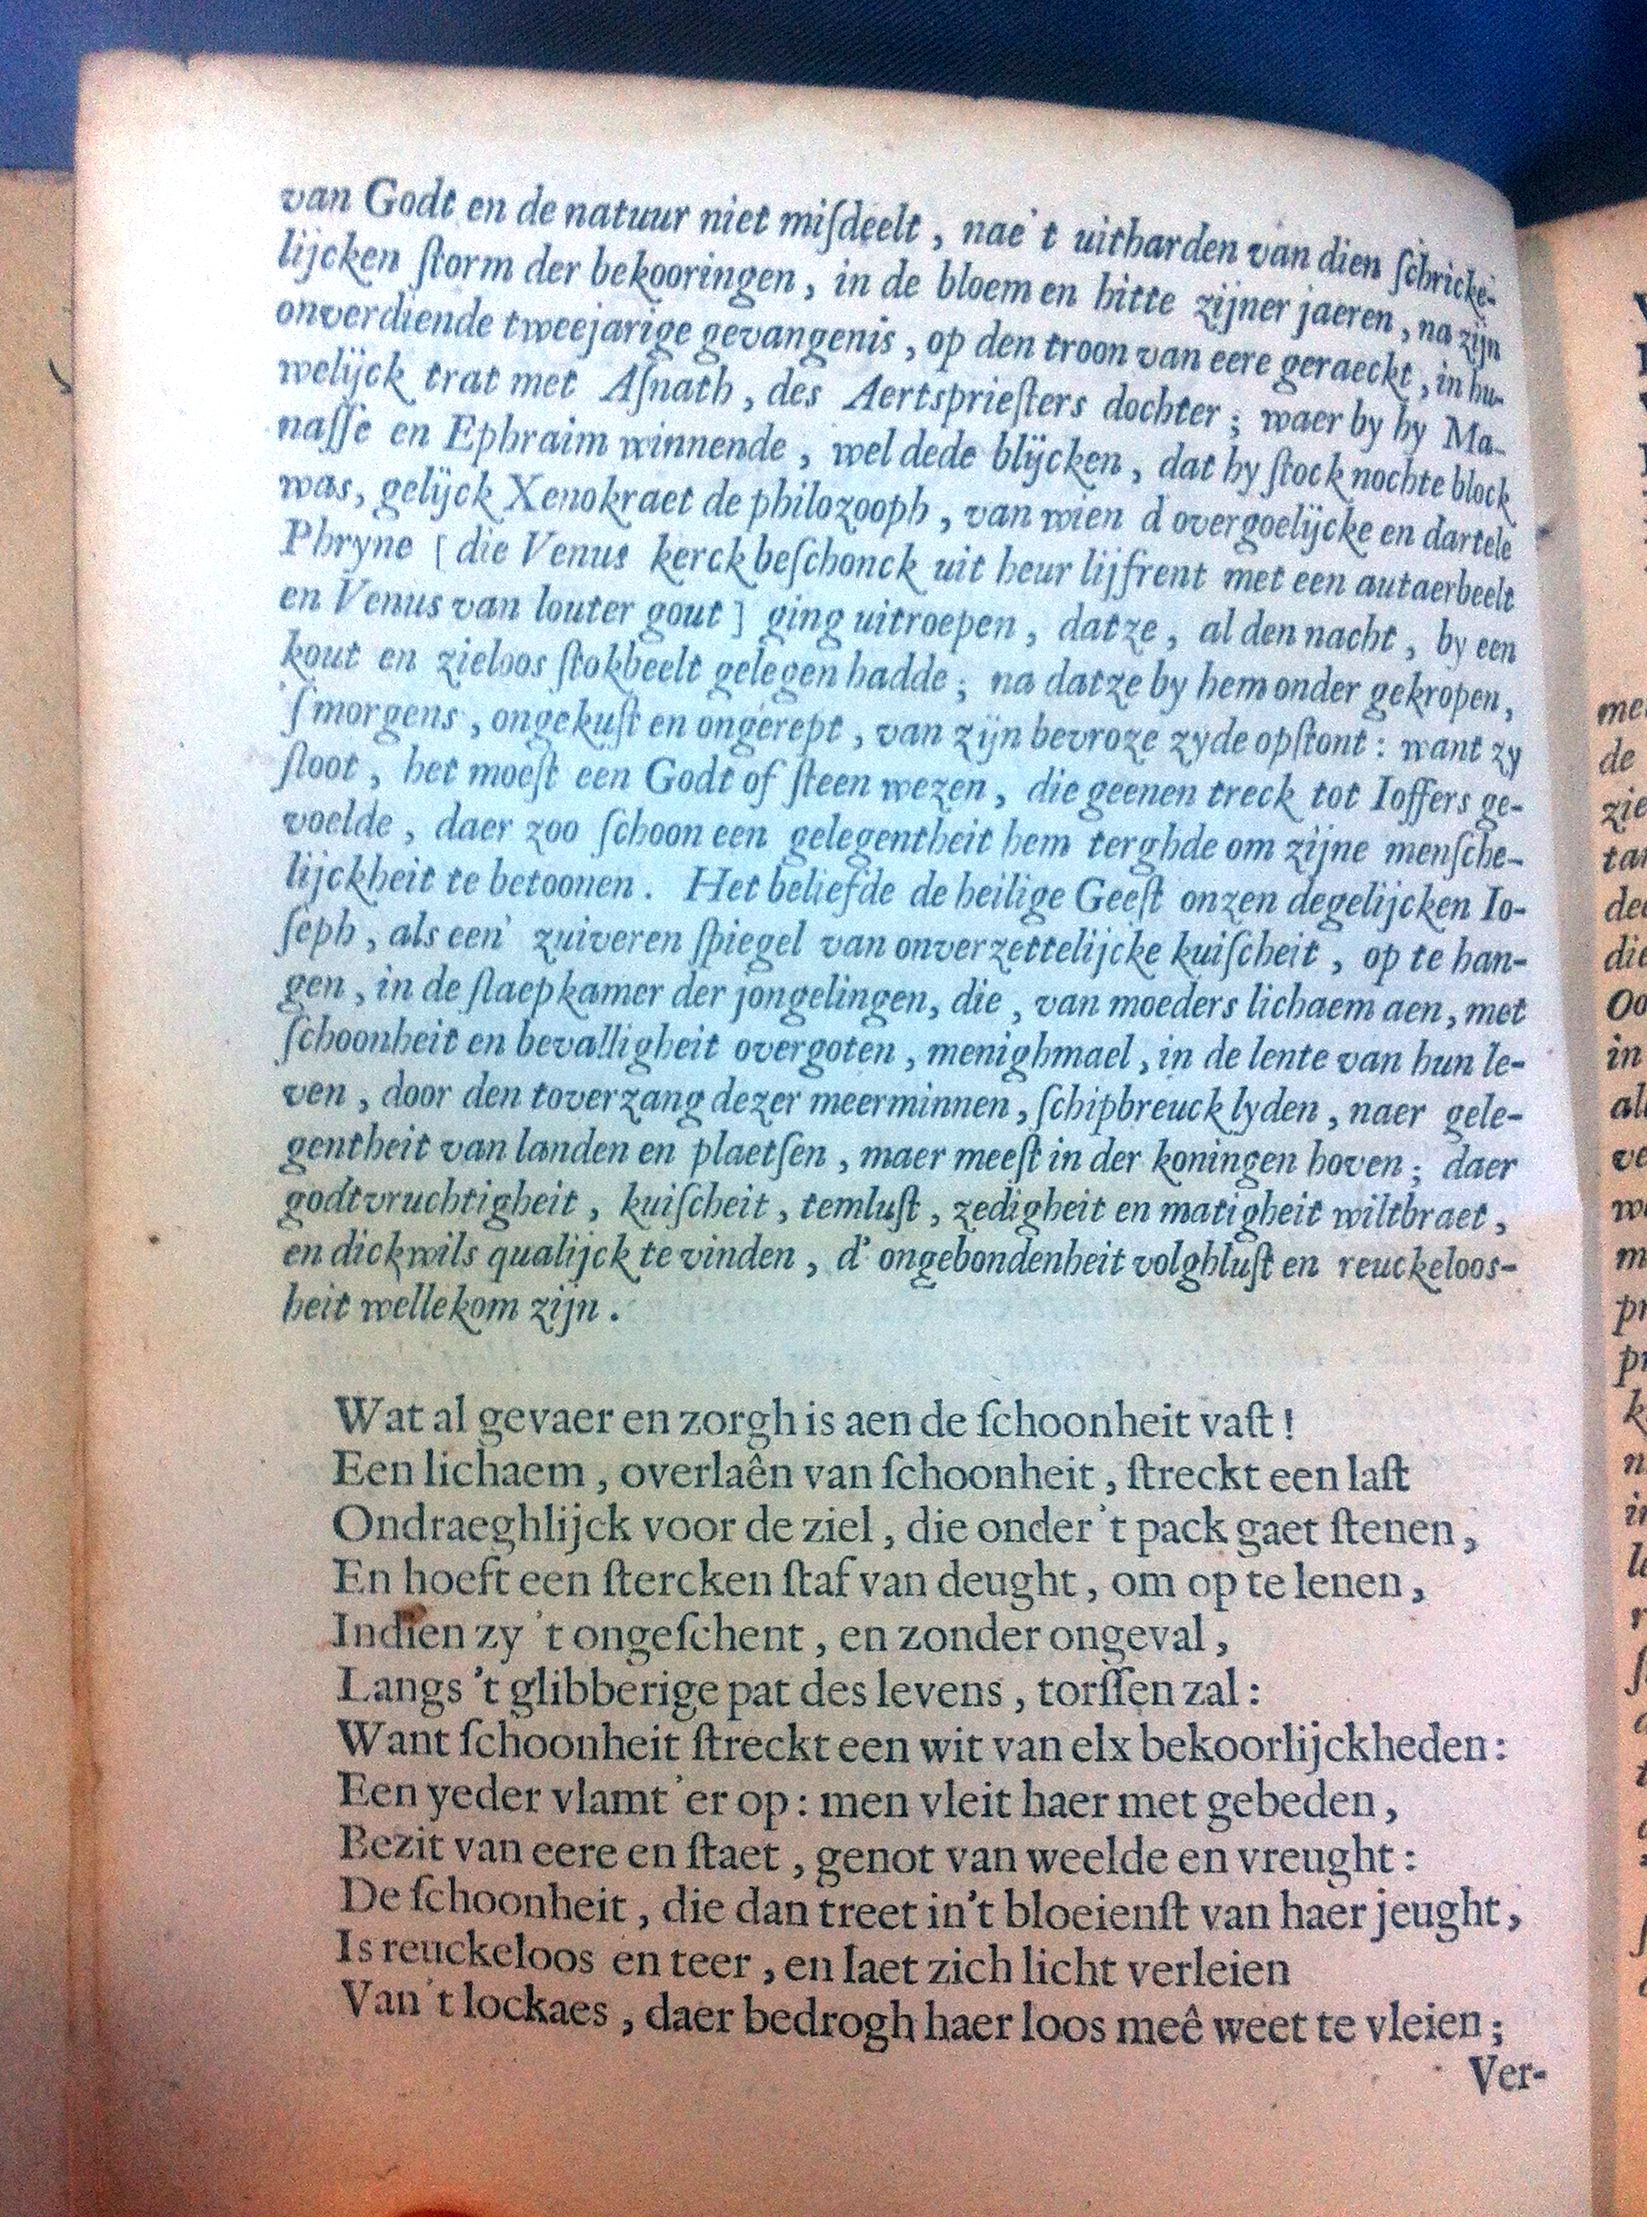 van Godt en de natuur niet miſdeelt, nae 't uitharden van dien ſchricke-
lijcken ſtorm der bekooringen, in de bloem en hitte zijner jaeren, na zijn
onverdiende tweejarige gevangenis, op den troon van eere geraeckt, in hu-
welijck trat met Aſnath, des Aertsprieſters dochter; waer by hy Ma-
naſſe en Ephraim winnende, wel dede blijcken, dat hy ſtock nochte block
was, gelijck Xenokraet de philozooph, van wien d overgoelijcke en dartele
Phryne [ die Venus kerck beſchonck uit heur lijfrent met een autaerbeelt
en Venus van louter gout ] ging uitroepen, datze, al den nacht, by een
kout en zieloos ſtokbeelt gelegen hadde; na datze by hem onder gekropen,
'ſmorgens, ongekuſt en ongerept, van zijn bevroze zyde opſtont: want zy
ſloot, het moeſt een Godt of ſteen wezen, die geenen treck tot Ioffers ge-
voelde, daer zoo ſchoon een gelegentheit hem terghde om zijne menſche-
lijckheit te betoonen. Het beliefde de heilige Geeſt onzen degelijcken Io-
ſeph, als een' zuiveren ſpiegel van onverzettelijcke kuiſcheit, op te han-
gen, in de ſlaepkamer der jongelingen, die, van moeders lichaem aen, met
ſchoonheit en bevalligheit overgoten, menighmael, in de lente van hun le-
ven, door den toverzang dezer meerminnen, ſchipbreuck lyden, naer gele-
gentheit van landen en plaetſen, maer meeſt in der koningen hoven; daer
godtvruchtigheit, kuiſcheit, temluſt, zedigheit en matigheit wiltbraet,
en dickwils qualijck te vinden, d' ongebondenheit volghluſt en reuckeloos-
heit wellekom zijn.
Wat al gevaer en zorgh is aen de ſchoonheit vaſt!
Een lichaem, overlaên van ſchoonheit, ſtreckt een laſt
Ondraeghlijck voor de ziel, die onder 't pack gaet ſtenen,
En hoeft een ſtercken ſtaf van deught, om op te lenen,
Indien zy 't ongeſchent, en zonder ongeval,
Langs 't glibberige pat des levens, torſſen zal:
Want ſchoonheit ſtreckt een wit van elx bekoorlijckheden:
Een yeder vlamt 'er op: men vleit haer met gebeden,
Bezit van eere en ſtaet, genot van weelde en vreught:
De ſchoonheit, die dan treet in't bloeienſt van haer jeught,
Is reuckeloos en teer, en laet zich licht verleien
Van 't lockaes, daer bedrogh haer loos meê weet te vleien;
Ver-